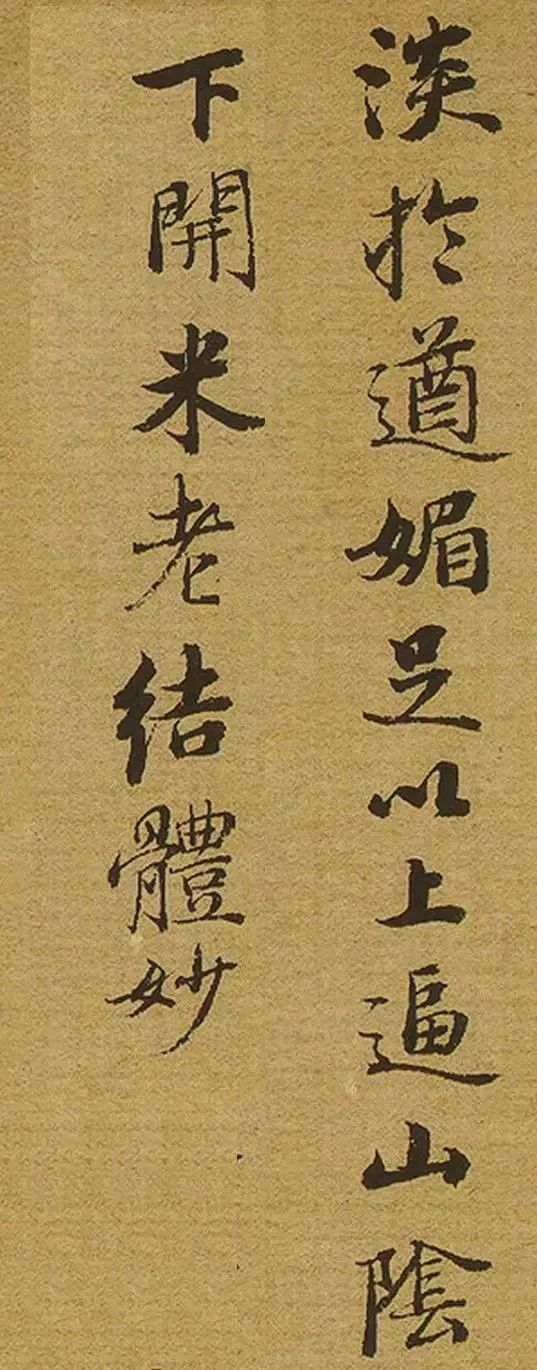 淡扵遒媚足以上逼山陰
下開米老結體妙